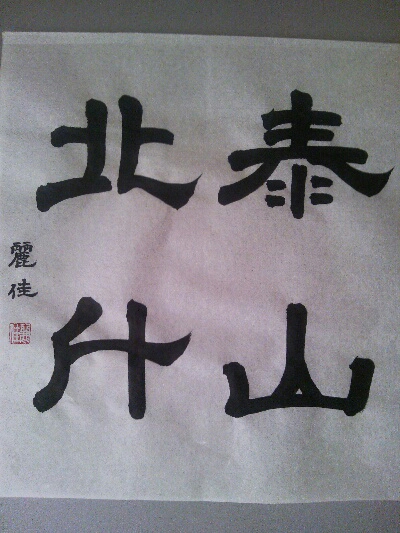 泰山
北斗
麗佳